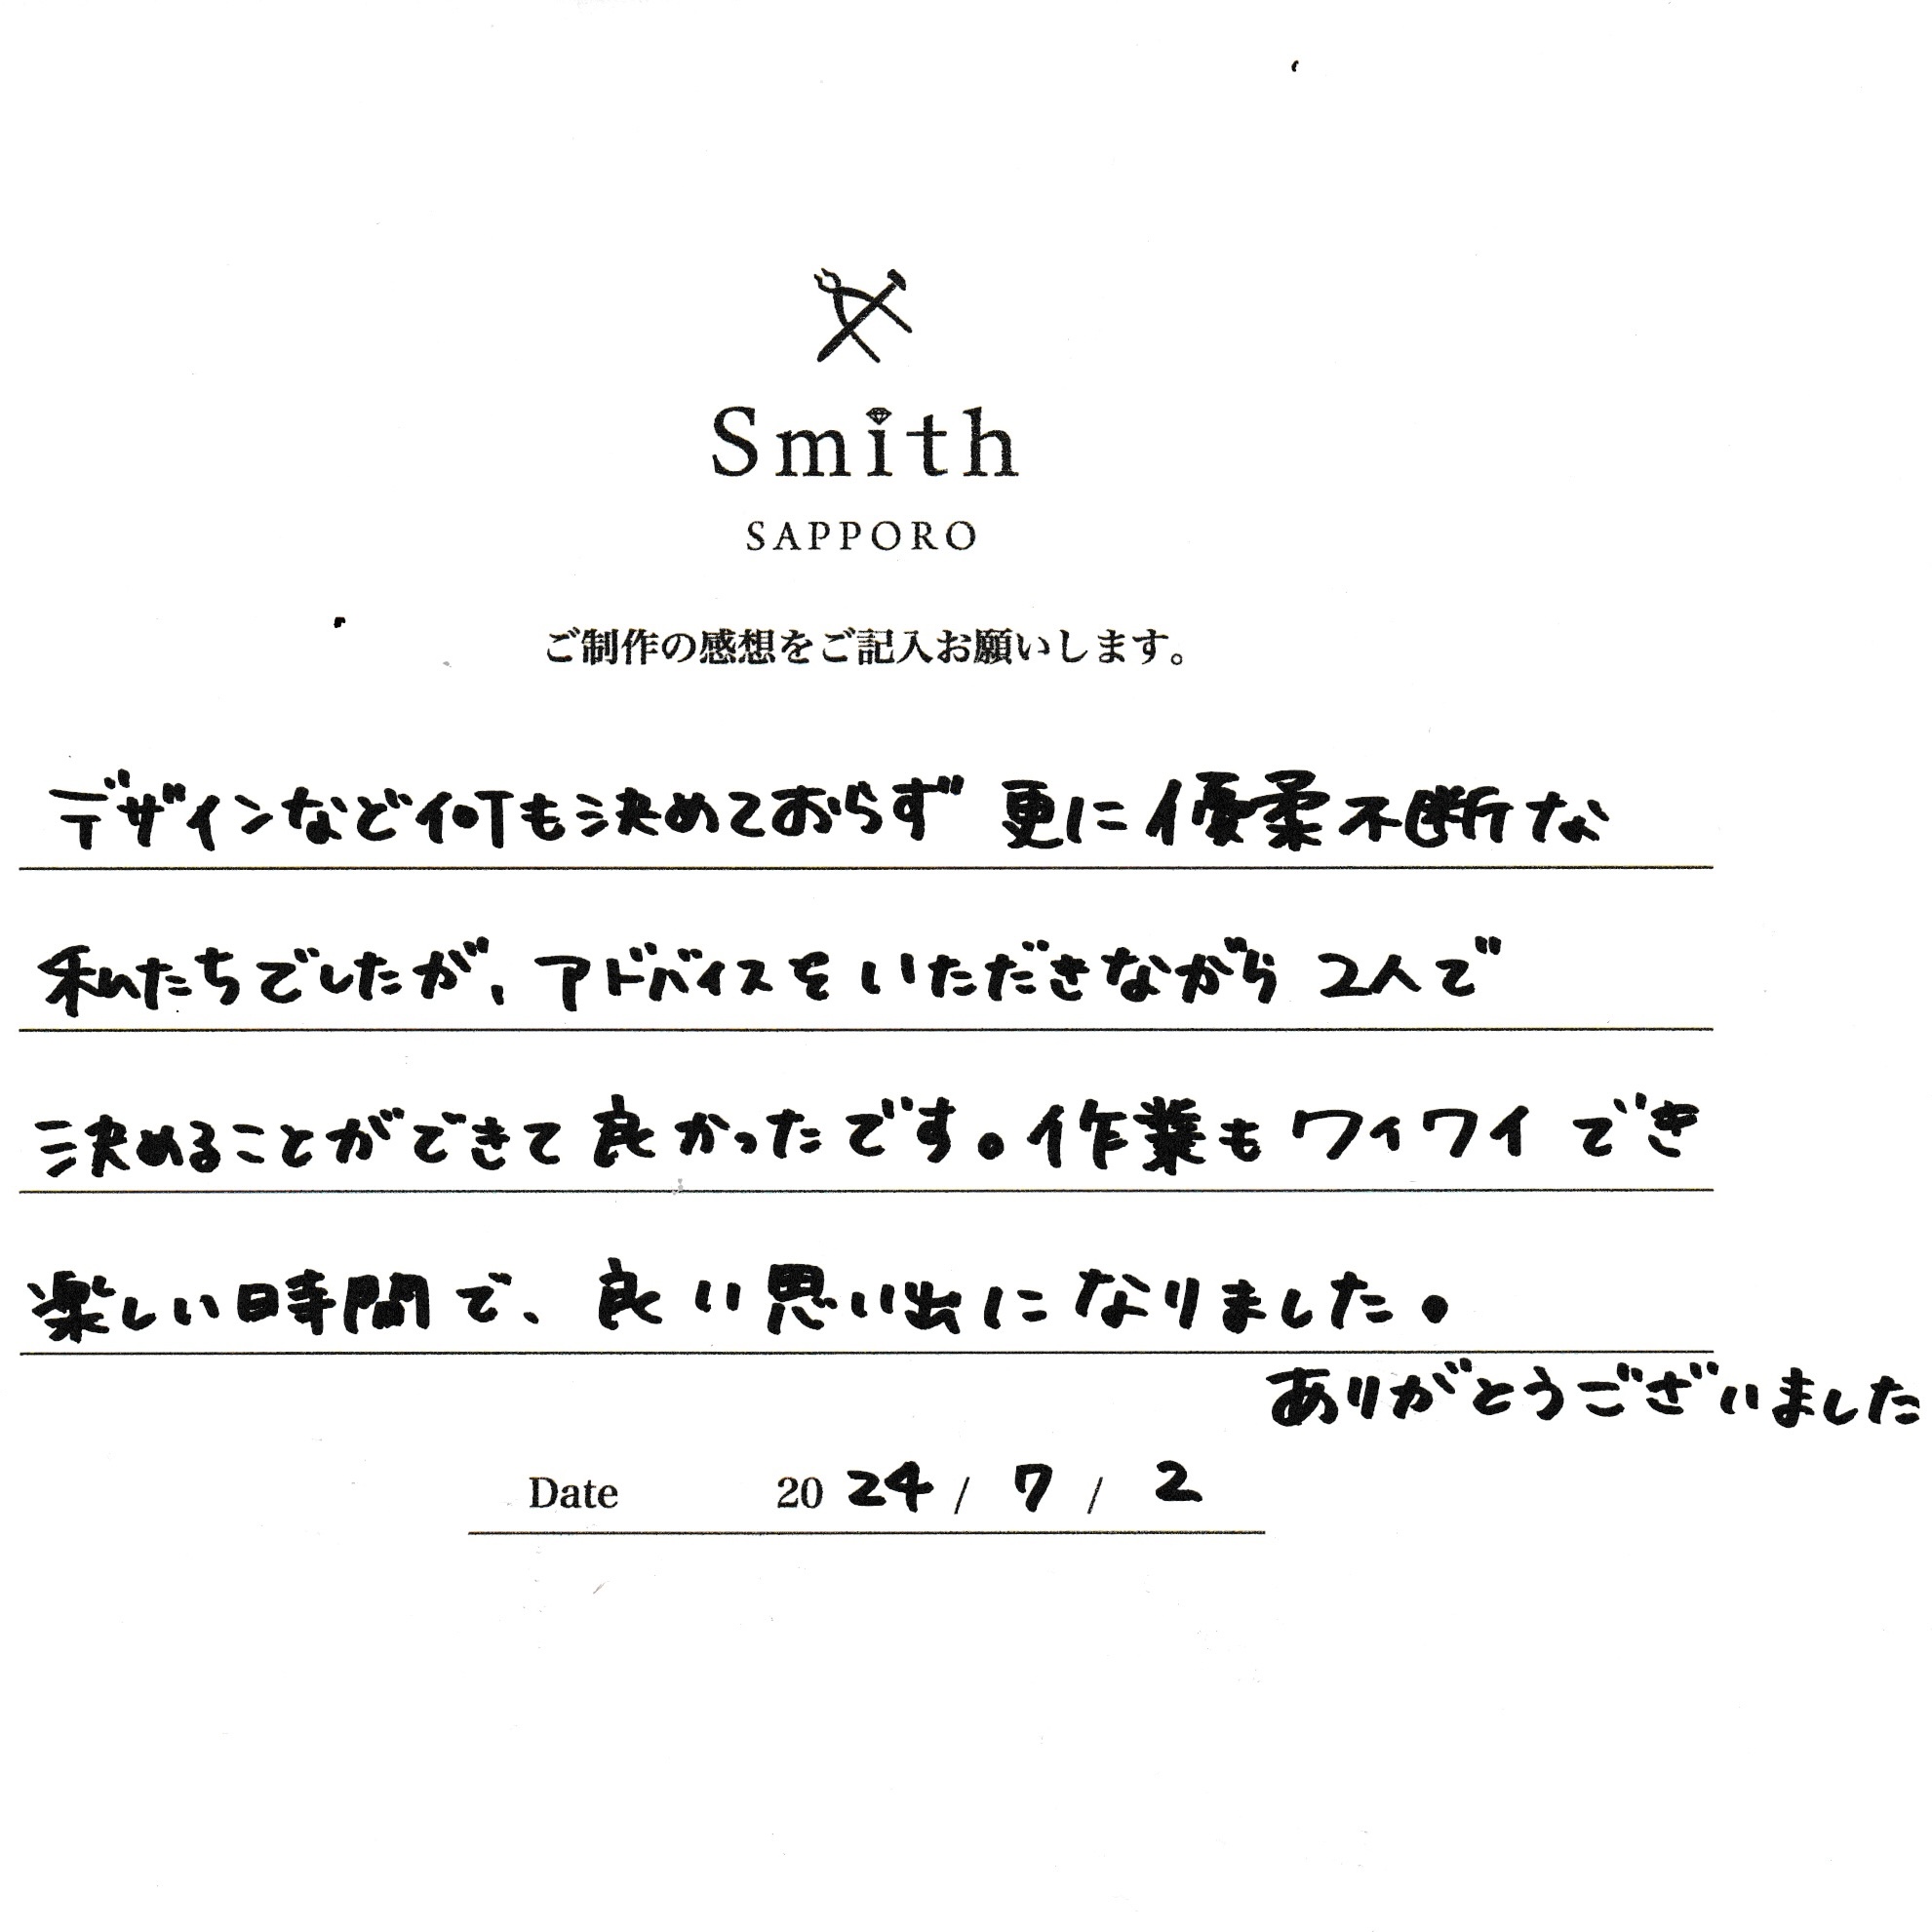 Smith
SAPPORO
ご制作の感想をご記入お願いします。
デザインなど何も決めておらず 更に優柔不断な
私たちでしたが、アドバイスをいただきながら 2人で
決めることができて良かったです。作業もワイワイでき
楽しい時間で、良い思い出になりました。
ありがとうございました
Date 2024 / 7 / 2